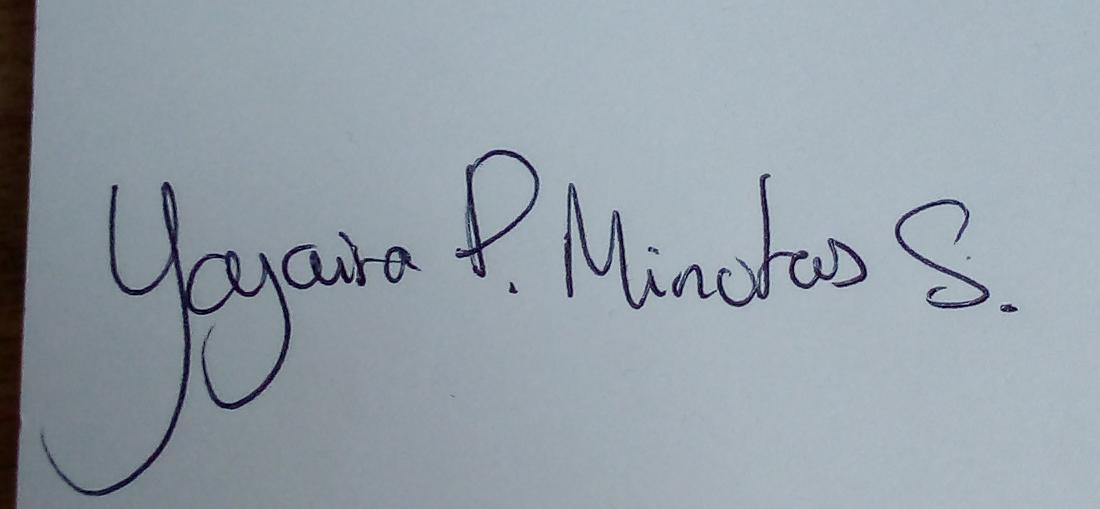 Yayaira P. Minotas S.